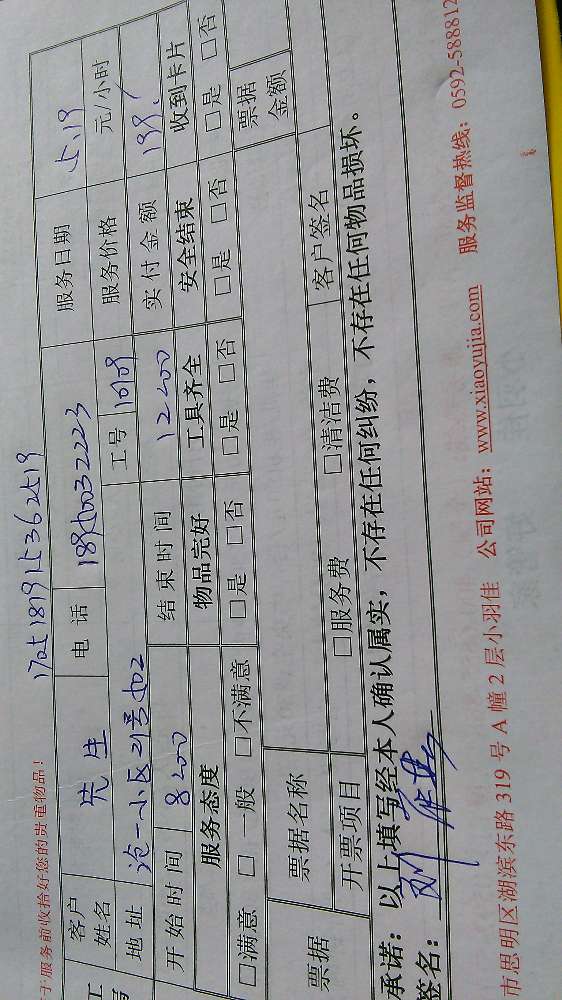 于服务前收拾好您的贵重物品！
1705181915362519
客户姓名 先生 电话 18950032223 服务日期 5.19
地址 沧一小区21号502 工号 10109 服务价格 元/小时
开始时间 8:00 结束时间 12:00 实付金额 199.
服务态度 物品完好 工具齐全 安全结束 收到卡片
□满意 □一般 □不满意 □是 □否 □是 □否 □是 □否 □是 □否
票据 票据名称 票据金额
开票项目 □服务费 □清洁费 客户签名
承诺：以上填写经本人确认属实，不存在任何纠纷，不存在任何物品损坏。
签名：
市思明区湖滨东路 319 号 A 幢 2 层小羽佳 公司网站：www.xiaoyujia.com 服务监督热线：0592-588812